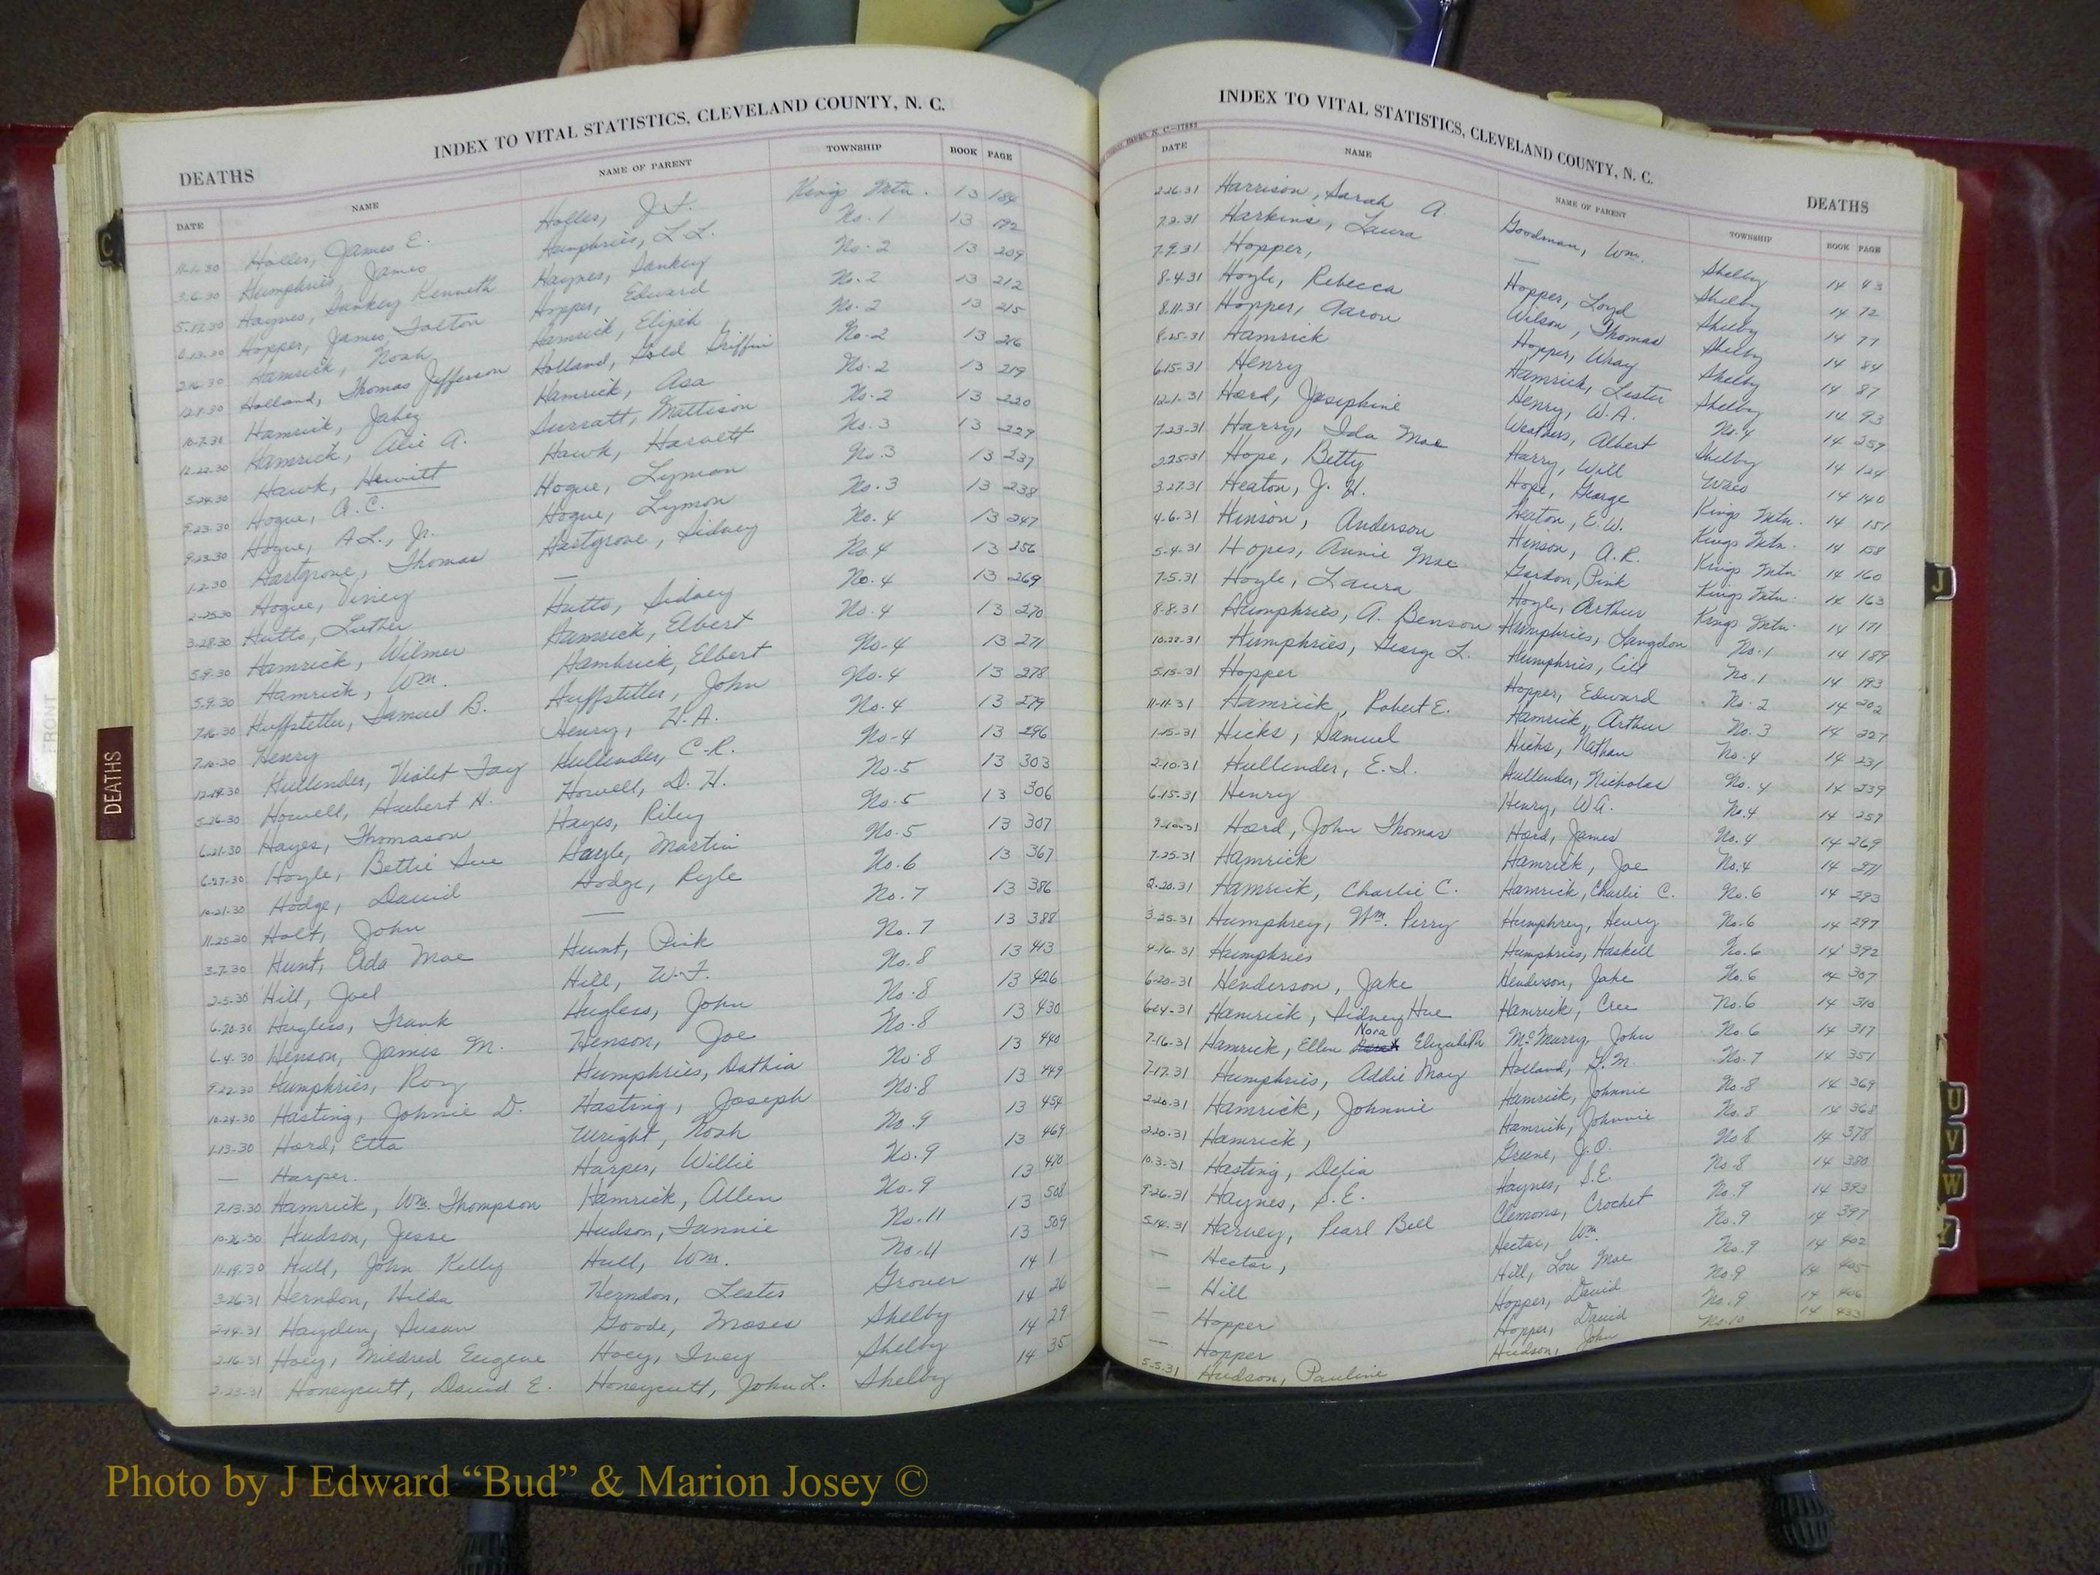 INDEX TO VITAL STATISTICS, CLEVELAND COUNTY, N. C.
DEATHS
DATE NAME NAME OF PARENT TOWNSHIP BOOK PAGE
11-1-30 Holles, James E. Holles, J. F. Kings Mtn. 13 184
3-6-30 Humphries James Humphries, L. L. No. 1 13 192
5-17-30 Haynes, Dankey Kenneth Haynes, Dankey No. 2 13 209
6-13-30 Hopper, James Folton Hopper, Edward No. 2 13 212
2-16-30 Hamrick, Noah Hamrick, Elijah No. 2 13 215
12-8-30 Holland, Thomas Jefferson Holland, Gold Griffin No. 2 13 216
10-7-30 Hamrick, Jabez Hamrick, Asa No. 2 13 219
12-22-30 Hamrick, Alie A. Surratt, Mattison No. 2 13 220
5-24-30 Hawk, Hewitt Hawk, Harvett No. 3 13 229
9-23-30 Hogue, A. C. Hogue, Lymon No. 3 13 237
9-23-30 Hogue, A L., Jr. Hogue, Lymon No. 3 13 238
1-2-30 Hartgrove, Thomas Hartgrove, Sidney No. 4 13 247
2-25-30 Hogue, Viney — No. 4 13 256
3-28-30 Hutto, Luther Hutto, Sidney No. 4 13 269
5-9-30 Hamrick, Wilmer Hamrick, Elbert No. 4 13 270
5-9-30 Hamrick, Wm. Hambrick, Elbert No. 4 13 271
7-16-30 Huffstetler, Samuel B. Huffstetler, John No. 4 13 278
7-10-30 Henry Henry, W. A. No. 4 13 279
12-19-30 Hullender, Violet Fay Hullender, C. R. No. 4 13 296
5-26-30 Howell, Hubert H. Howell, D. H. No. 5 13 303
6-21-30 Hayes, Thomason Hayes, Riley No. 5 13 306
6-27-30 Hoyle, Bettie Sue Hoyle, Martin No. 5 13 307
10-21-30 Hodge, David Hodge, Ryle No. 6 13 367
11-25-30 Holt, John — No. 7 13 386
3-7-30 Hunt, Ada Mae Hunt, Pink No. 7 13 388
2-5-30 Hill, Joel Hill, W. F. No. 8 13 413
6-20-30 Hugless, Frank Hugless, John No. 8 13 426
6-4-30 Henson, James M. Henson, Joe No. 8 13 430
9-22-30 Humphries, Roy Humphries, Dathia No. 8 13 440
10-24-30 Hasting, Johnie D. Hasting, Joseph No. 8 13 449
1-13-30 Hord, Etta Wright, Noah No. 9 13 454
— Harper. Harper, Willie No. 9 13 469
7-13-30 Hamrick, Wm. Thompson Hamrick, Allen No. 9 13 470
10-26-30 Hudson, Jesse Hudson, Fannie No. 11 13 508
11-19-30 Hull, John Kelly Hull, Wm. No. 11 13 509
3-26-31 Herndon, Hilda Herndon, Lester Grover 14 1
2-14-31 Hayden, Susan Goode, Moses Shelby 14 26
2-16-31 Hoey, Mildred Eugene Hoey, Ivey Shelby 14 29
2-23-31 Honeycutt, David E. Honeycutt, John L. Shelby 14 35
INDEX TO VITAL STATISTICS, CLEVELAND COUNTY, N. C.
DEATHS
DATE NAME NAME OF PARENT TOWNSHIP BOOK PAGE
2-26-31 Harrison, Sarah A. Goodman, Wm. Shelby 14 43
7-2-31 Harkins, Laura — Shelby 14 72
7-9-31 Hopper, Hopper, Loyd Shelby 14 77
8-4-31 Hoyle, Rebecca Wilson, Thomas Shelby 14 84
8-11-31 Hopper, Aaron Hopper, Wray Shelby 14 87
8-25-31 Hamrick Hamrick, Lester Shelby 14 93
6-15-31 Henry Henry, W. A. No. 4 14 259
12-1-31 Hord, Josephine Weathers, Albert Shelby 14 124
7-23-31 Harry, Ida Mae Harry, Will Waco 14 140
2-25-31 Hope, Betty Hope, George Kings Mtn. 14 151
3-27-31 Heaton, J. H. Heaton, E. W. Kings Mtn. 14 158
4-6-31 Henson, Anderson Henson, A. R. Kings Mtn 14 160
5-4-31 Hopes, Annie Mae Gordon, Pink Kings Mtn. 14 163
7-5-31 Hoyle, Laura Hoyle, Arthur Kings Mtn. 14 171
8-8-31 Humphries, A. Benson Humphries, Langdon No. 1 14 189
10-22-31 Humphries, George L. Humphries, Cill No. 1 14 193
5-15-31 Hopper Hopper, Edward No. 2 14 202
11-11-31 Hamrick, Robert E. Hamrick, Arthur No. 3 14 227
1-15-31 Hicks, Samuel Hicks, Nathan No. 4 14 231
2-10-31 Hullender, E. I. Hullender, Nicholas No. 4 14 239
6-15-31 Henry Henry, W A. No. 4 14 259
9-10-31 Hord, John Thomas Hord, James No. 4 14 269
7-25-31 Hamrick Hamrick, Joe No. 4 14 271
2-20-31 Hamrick, Charlie C. Hamrick, Charlie C. No. 6 14 293
3-25-31 Humphrey, Wm. Perry Humphrey, Henry No. 6 14 297
4-16-31 Humphries Humphries, Haskell No. 6 14 392
6-20-31 Henderson, Jake Henderson, Jake No. 6 14 307
6-24-31 Hamrick, Sidney Hue Hamrick, Cree No. 6 14 310
7-16-31 Hamrick, Ellen Nora Elizabeth McMurry, John No. 6 14 317
7-17-31 Humphries, Addie May Holland, D. M. No. 7 14 351
2-20-31 Hamrick, Johnnie Hamrick, Johnnie No. 8 14 369
2-20-31 Hamrick, Hamrick, Johnnie No. 8 14 368
10-3-31 Hasting, Delia Greene, J. O. No 8 14 378
9-26-31 Haynes, S. E. Haynes, S. E. No. 8 14 380
5-14-31 Harvey, Pearl Bell Clemons, Crochet No. 9 14 393
— Hector, Hector, Wm No. 9 14 397
— Hill Hill, Lou Mae No. 9 14 402
— Hopper Hopper, David No. 9 14 405
— Hopper Hopper, David No. 9 14 406
5-5-31 Hudson, Pauline Hudson, John No. 10 14 433
C
DEATHS
FRONT
J
U
V
W
Photo by J Edward “Bud” & Marion Josey ©